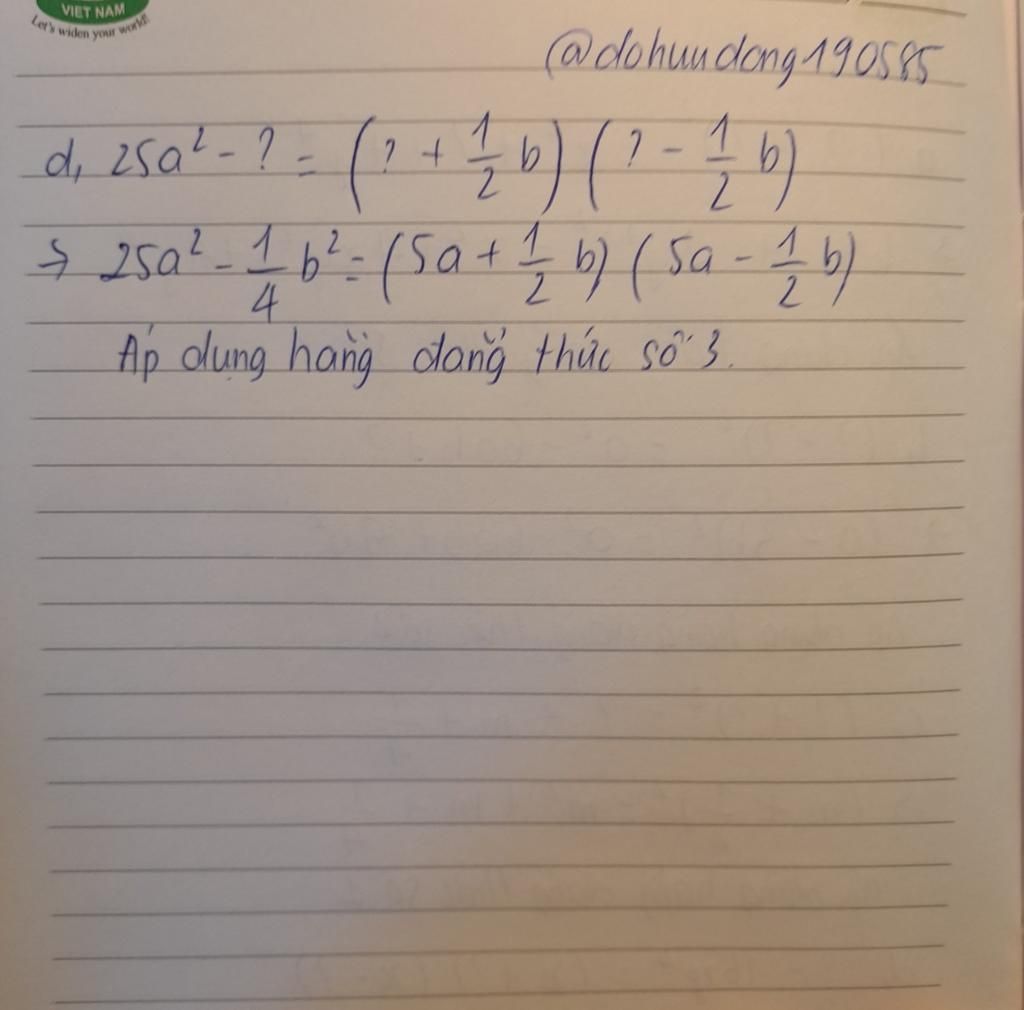 VIET NAM
Let's widen your world!
@dohuudong190585
d, 25a² - ? = (? + 1/2 b) (? - 1/2 b)
→ 25a² - 1/4 b² = (5a + 1/2 b) (5a - 1/2 b)
Áp dụng hằng đẳng thức số 3.